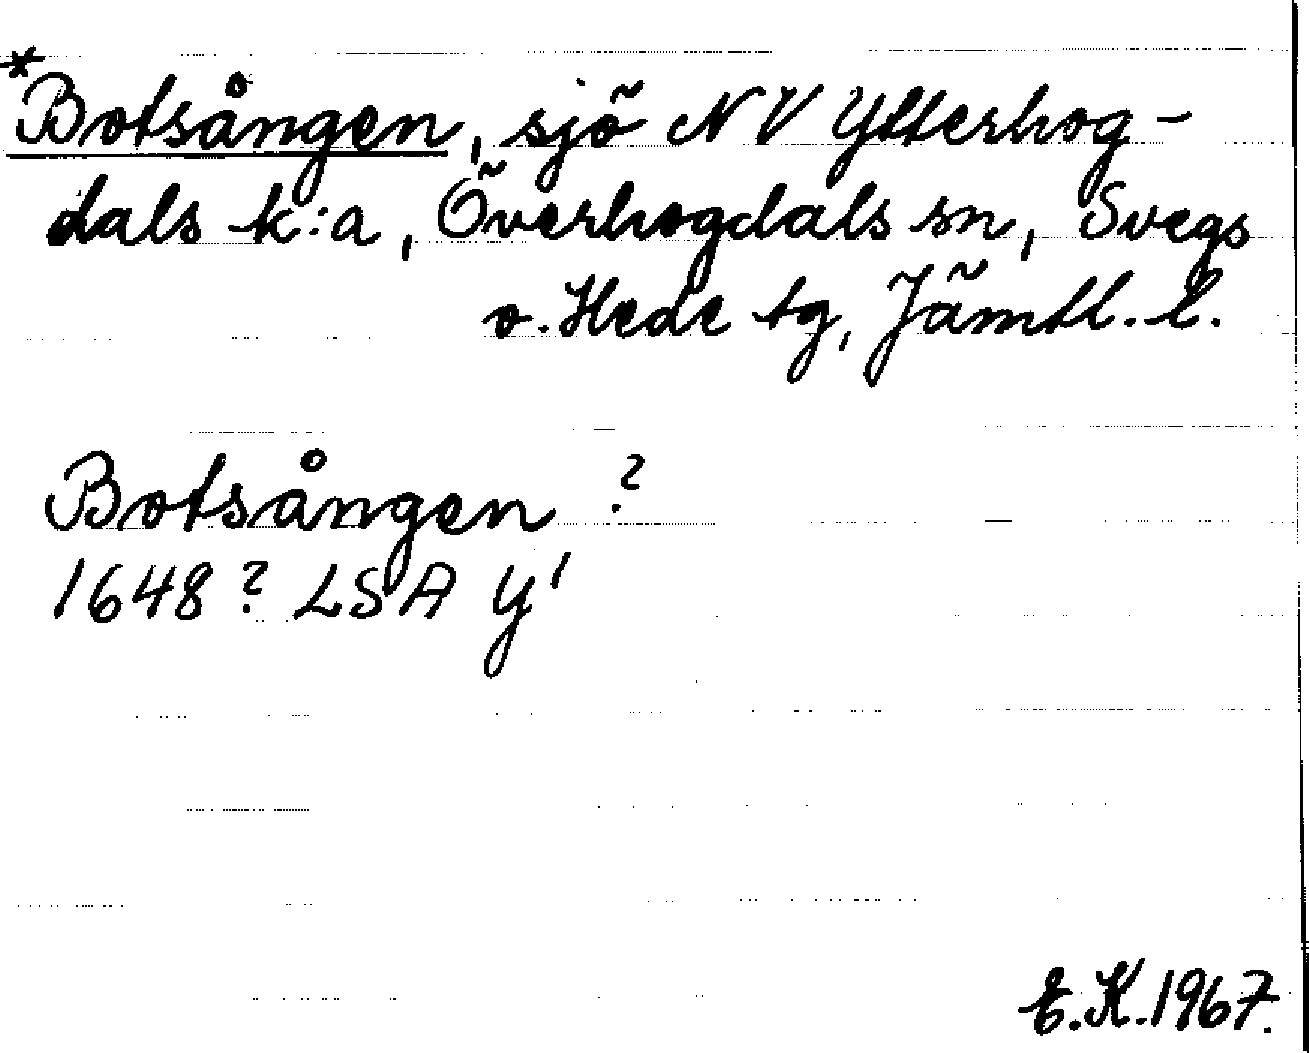 *Botsången, sjö NV Ytterhog-
dals k:a, Överhogdals sn, Svegs
o. Hede tg, Jämtl. l.
Botsången ?
1648? LSA Y¹
E.K. 1967.